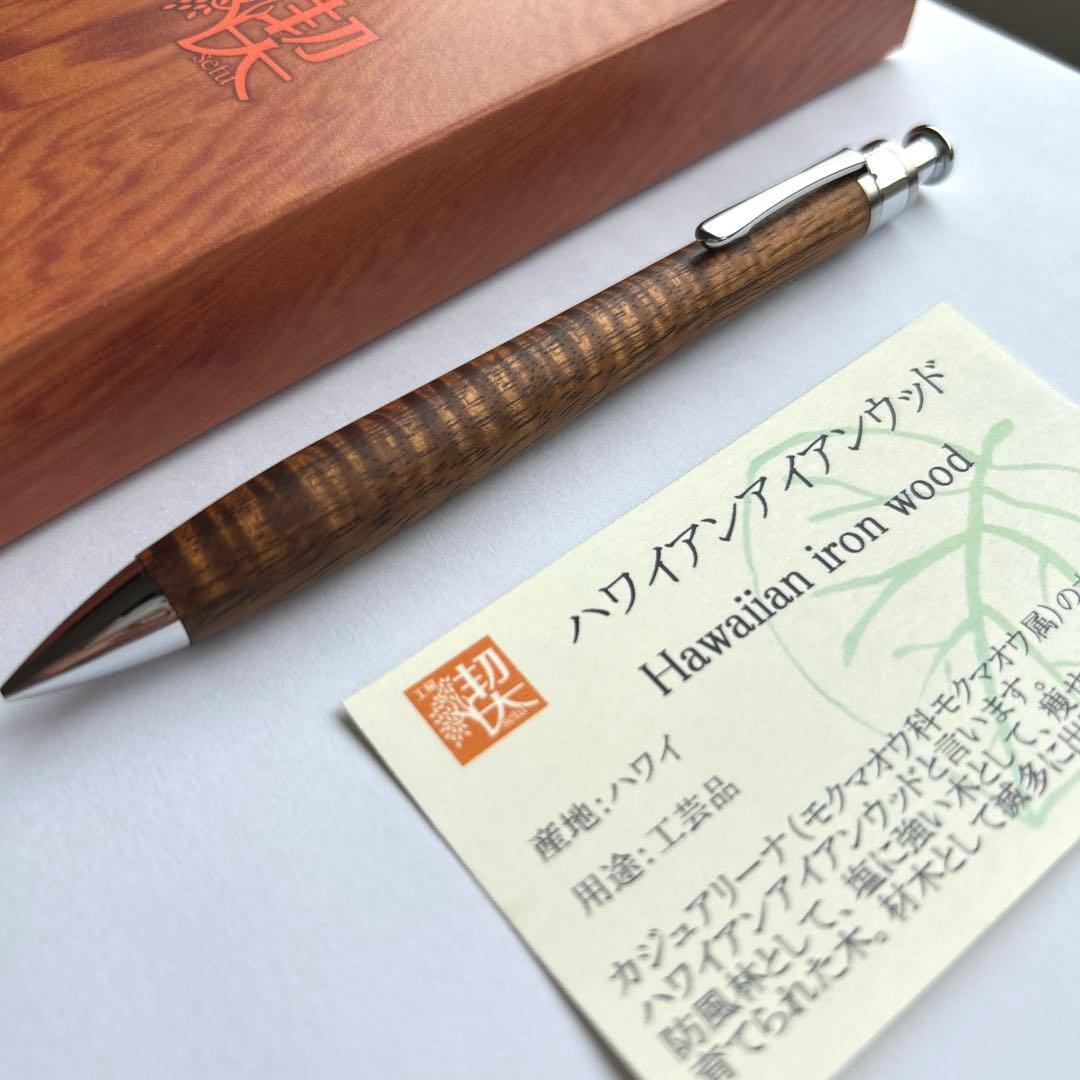 契
setu
ハワイアンアイアンウッド
Hawaiian iron wood
工房
契
setu
産地：ハワイ
用途：工芸品
カジュアリーナ（モクマオウ科モクマオウ属）の
ハワイアンアイアンウッドと言います。
防風林として、塩に強い木として、痩せ
育てられた木。材木として滅多に出